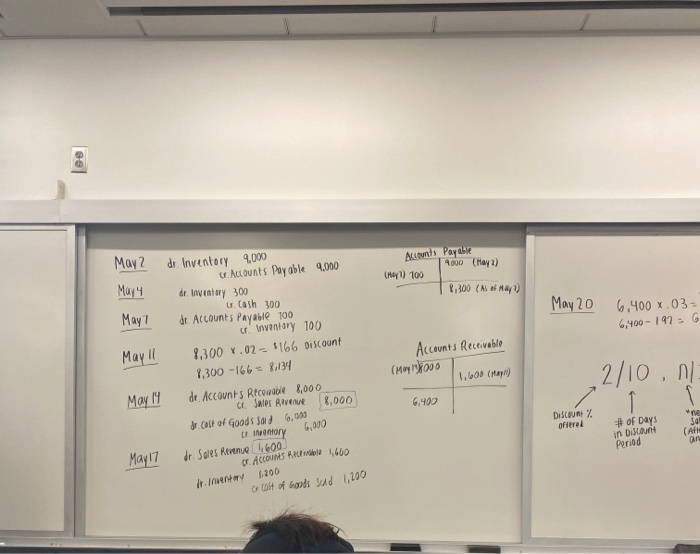 May 2 dr. Inventory 9,000
cr. Accounts Payable 9,000
May 4 dr. Inventory 300
cr. Cash 300
May 7 dr. Accounts Payable 700
cr. Inventory 700
May 11 8,300 x .02 = $166 Discount
8,300 - 166 = 8,134
May 14 dr. Accounts Receivable 8,000
cr. Sales Revenue 8,000
dr. Cost of Goods Sold 6,000
cr. Inventory 6,000
May 17 dr. Sales Revenue 1,600
cr. Accounts Receivable 1,600
dr. Inventory 1,200
cr. Cost of Goods Sold 1,200
Accounts Payable
9000 (May 2)
(May 7) 700
8,300 (As of May 7)
Accounts Receivable
(May 14) 8000
1,600 (May 17)
6,400
May 20 6,400 x .03 =
6,400 - 192 = 6
2/10, n/
Discount %
offered
# of Days
in Discount
Period